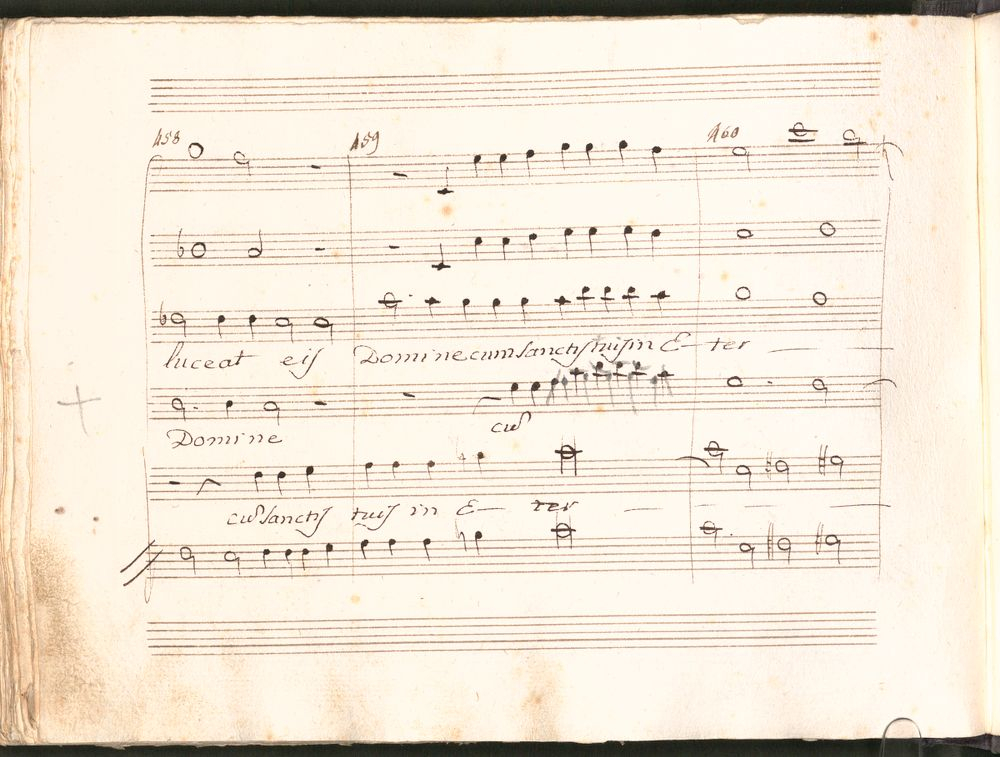 458 459 460
luceat eis Domine cum sanctis tuis in E- ter
Domine cū
cū sanctis tuis in E- ter